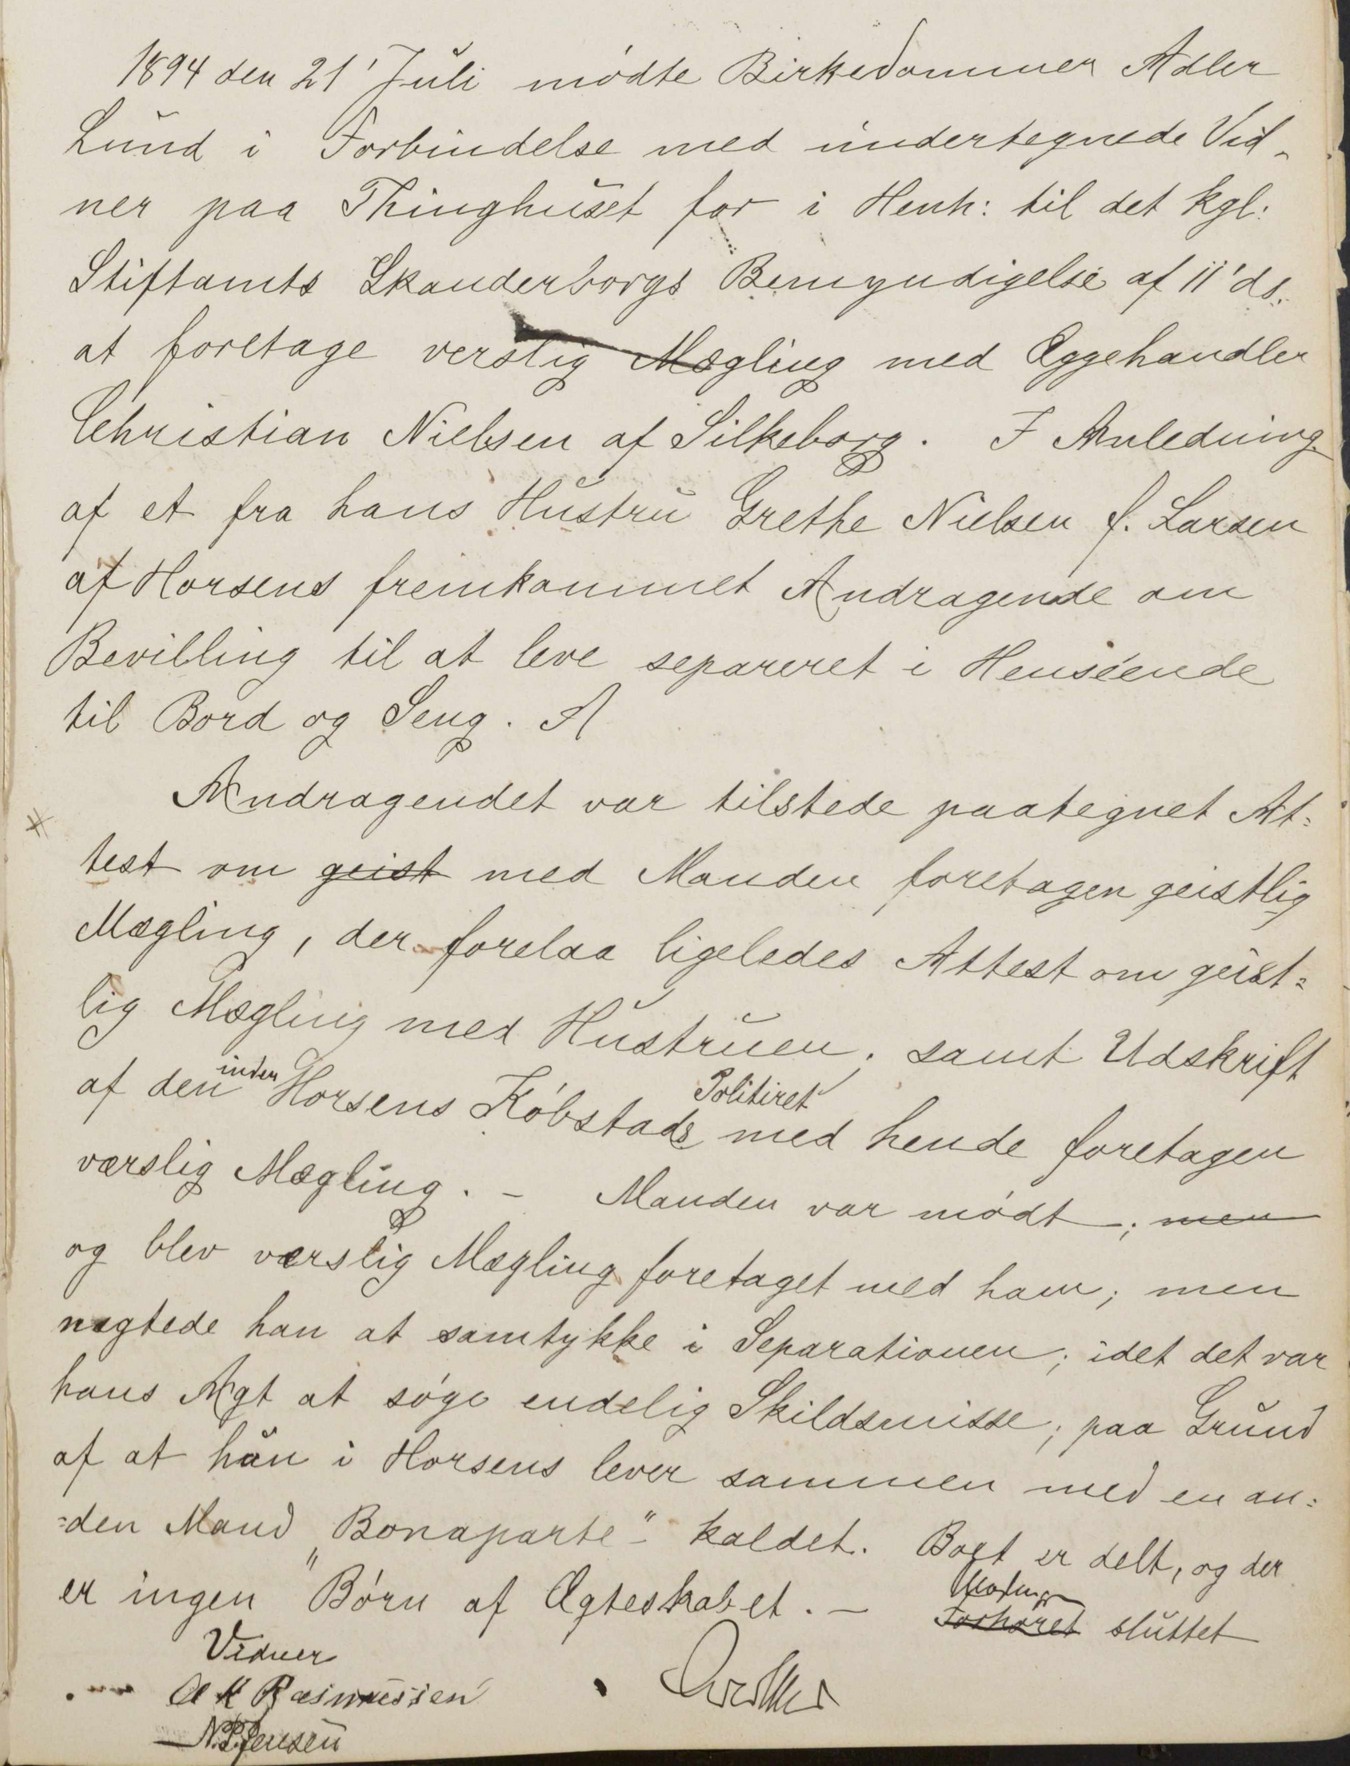 1894 den 21' Juli mødte Birkedommer Adler
Lund i Forbindelse med undertegnede Vid-
ner paa Thinghuset for i Henh: til det kgl:
Stiftamts Skanderborgs Bemyndigelse af 11' ds.
at foretage verslig Mægling med Æggehandler
Christian Nielsen af Silkeborg. I Anledning
af et fra hans Hustru Grethe Nielsen f. Larsen
af Horsens fremkommet Andragende om
Bevilling til at leve separeret i Henseende
til Bord og Seng. A
Andragendet var tilstede paategnet At=
test om geist med Manden foretagen geistlig
Mægling, der forelaa ligeledes Attest om geist=
lig Mægling med Hustruen, samt Udskrift
af den inden Horsens Købstads Politiret med hende foretagen
værslig Mægling. - Manden var mødt; men
og blev værslig Mægling foretaget med ham; men
nægtede han at samtykke i Separationen; idet det var
hans Agt at søge endelig Skildsmisse; paa Grund
af at hun i Horsens lever sammen med en an=
=den Mand "Bonaparte"- kaldet. Boet er delt, og der
er ingen Børn af Ægteskabet. - Forhøret sluttet
Vidner
Rasmussen
N.P. Jensen